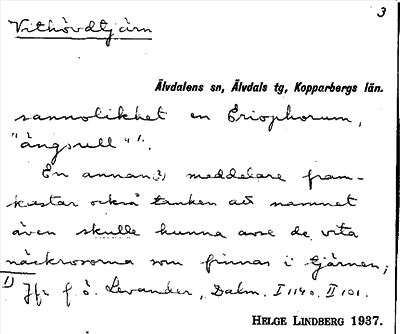 3
Vithövdtjärn
Älvdalens sn, Älvdals tg, Kopparbergs län.
sannolikhet en Eriophorum,
"ängsull" 1).
En annan 2) meddelare fram-
kastar också tanken att namnet
även skulle kunna avse de vita
näckrosorna som finnas i tjärnen;
1) Jfr f. ö. Levander, Dalm. I 1140. II 101.
HELGE LINDBERG 1937.